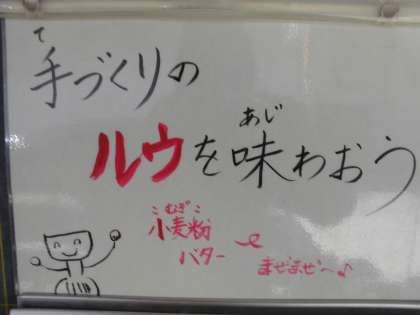 て
手づくりの
あじ
ルウを味わおう
こむぎこ
小麦粉
バター
まぜまぜ〜♪